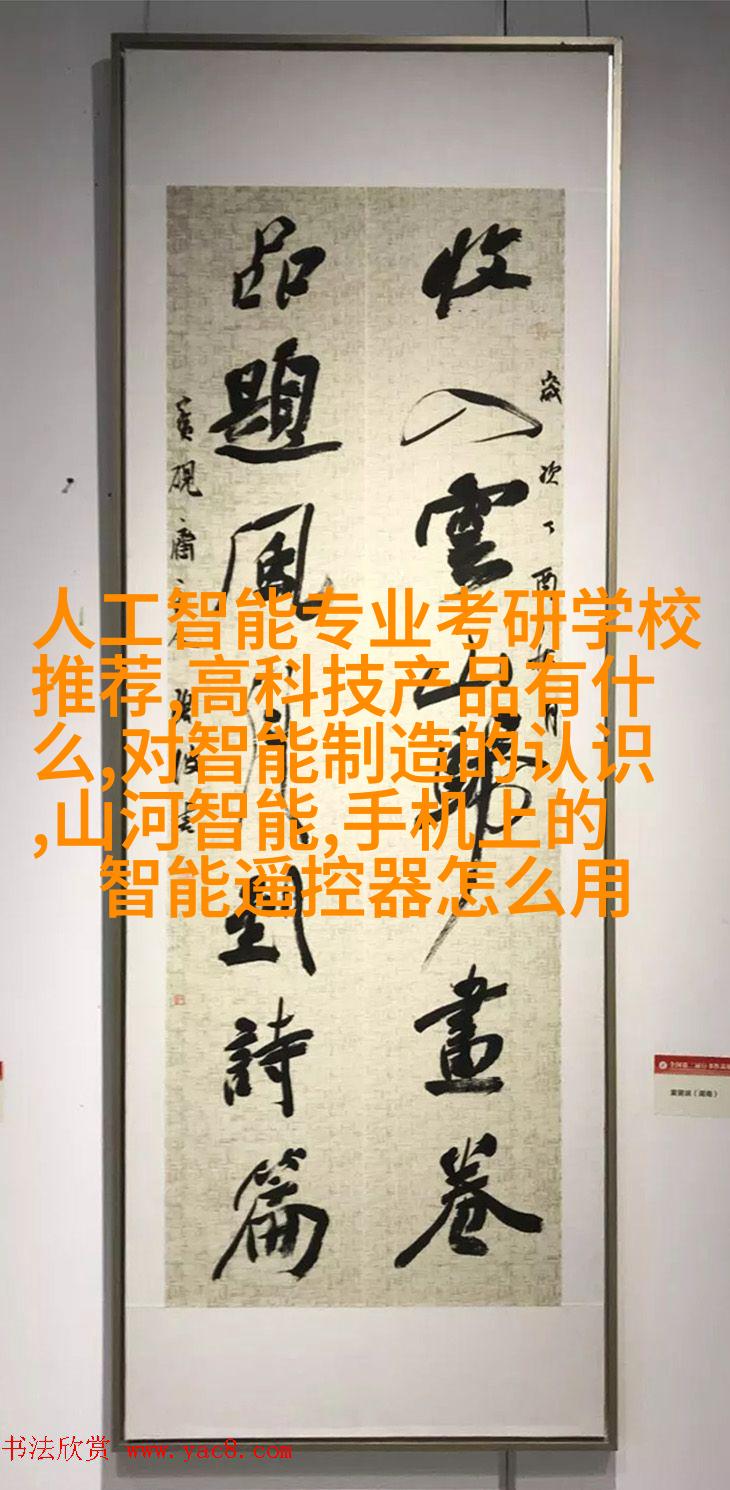 收入雲山歸畫卷
品題風月到詩篇
歲次丁酉
人工智能专业考研学校
推荐,高科技产品有什
么,对智能制造的认识
,山河智能,手机上的
智能遥控器怎么用
书法欣赏 www.yac8.com